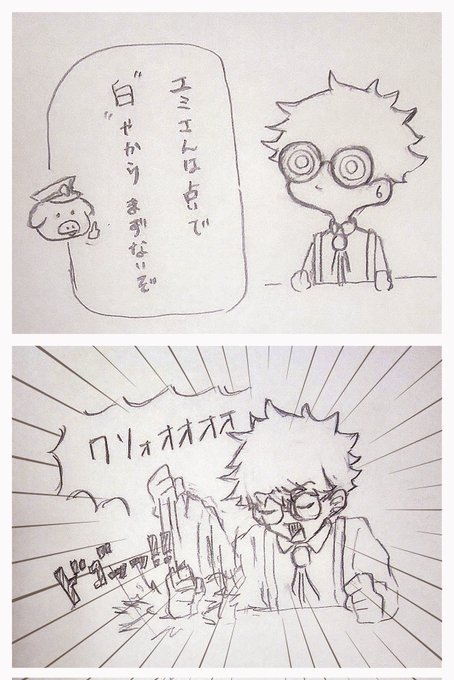 エミさんは占いで
"白"やからまずないぞ
クソォオオオオ
ドゴォッ!!